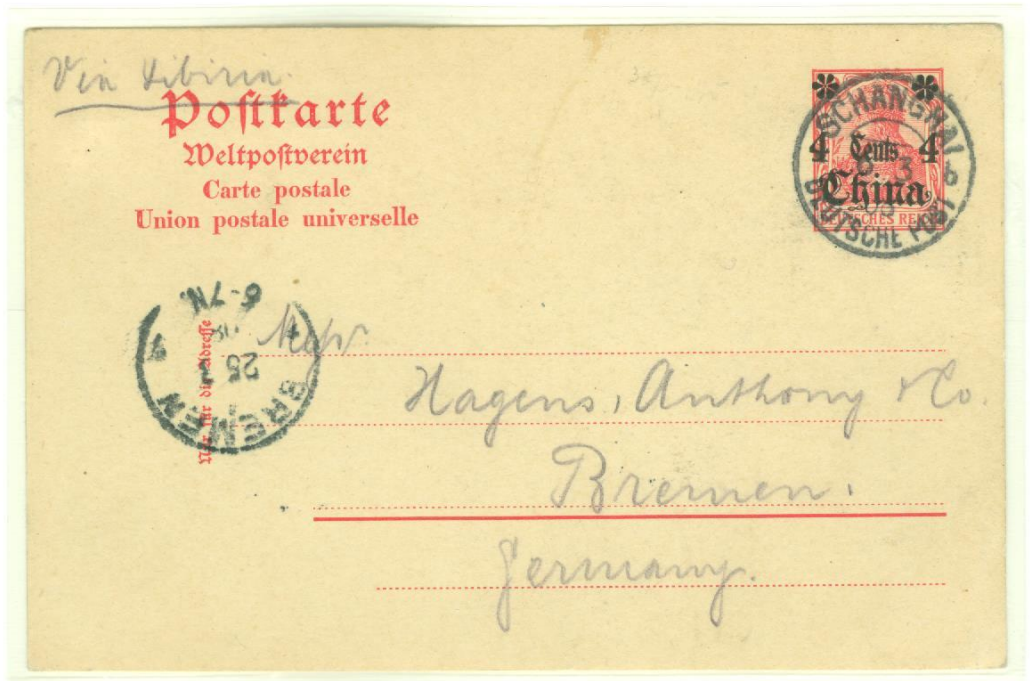 Via Sibiria.
Postkarte
Weltpostverein
Carte postale
Union postale universelle
SCHANGHAI
b
4 Cents 4
6 3
China
DEUTSCHES REICH
DEUTSCHE POST
6-7N.
08
25
BREMEN
Nur für die Adresse
Messr.
Hagens, Anthony & Co.
Bremen.
Germany.